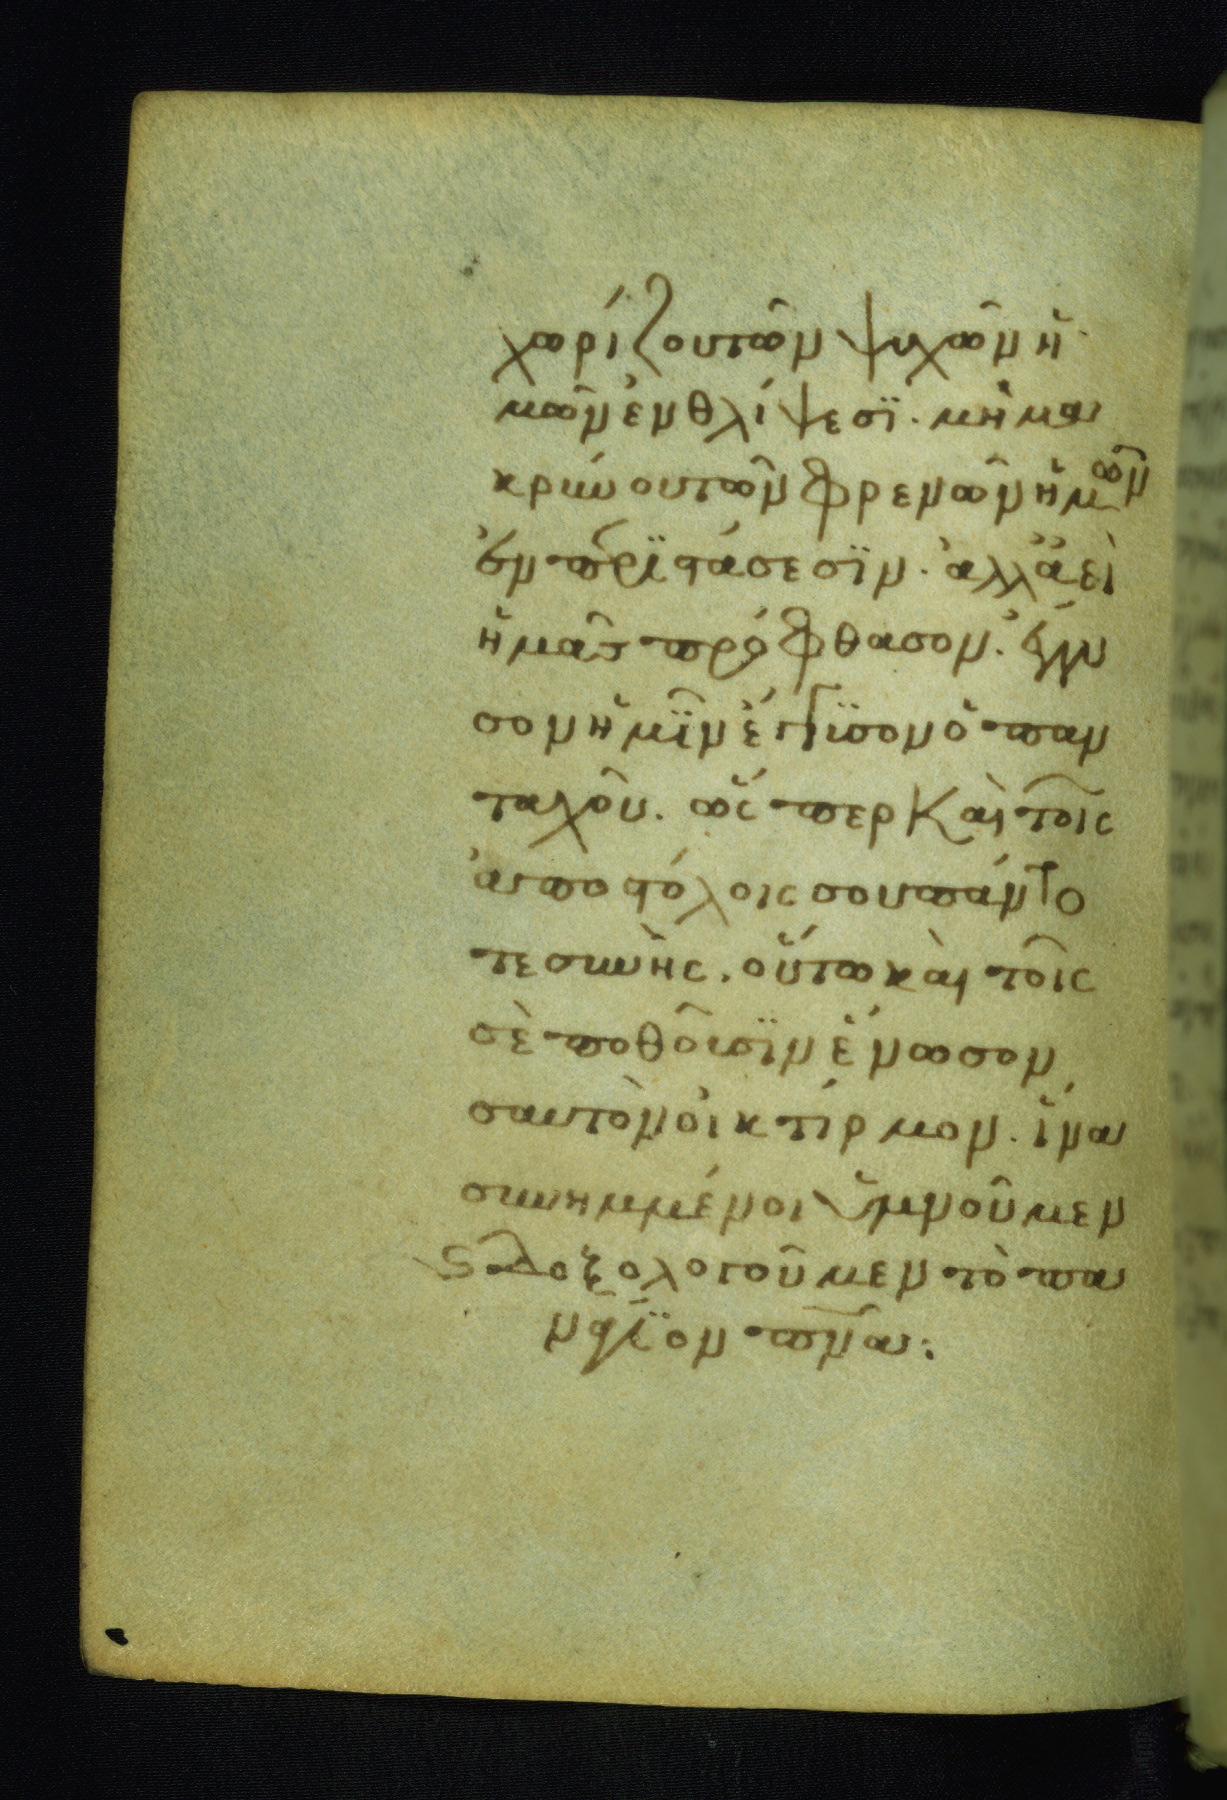 χωρίζου τῶν ψυχῶν ἡ
μῶν ἐν θλίψεσϊ. μὴ μα
κρύνου τῶν φρενῶν ἡμῶν
ἐν περϊστάσεσϊν. ἀλλ' ἀεὶ
ἡμᾶς πρόφθασον. ἔγγι
σον ἡμῖν ἔγγϊσον ὁ παν
ταχοῦ. ὥσπερ καὶ τοῖς
ἀποστόλοις σου πάντο
τε συνῆς. οὕτω καὶ τοῖς
σὲ ποθοῦσϊν ἕνωσον
σαυτὸν οἰκτίρμον. ἵνα
συνημμένοι ὑμνοῦμεν
ϛ δοξολογοῦμεν τὸ πα
νάγϊον πνα: